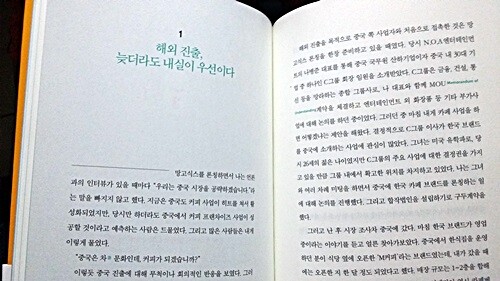 1
해외 진출,
늦더라도 내실이 우선이다
망고식스를 론칭하면서 나는 언론
과의 인터뷰가 있을 때마다 "우리는 중국 시장을 공략하겠습니다"라
는 말을 빠지지 않고 했다. 지금은 중국도 커피 사업이 히트를 쳐서 활
성화되었지만, 당시만 하더라도 중국에서 커피 프랜차이즈 사업이 성
공할 것이라고 예측하는 사람은 드물었다. 그리고 많은 사람들은 내게
이렇게 물었다.
"중국은 차 문화인데, 커피가 되겠습니까?"
이렇듯 중국 진출에 대해 무척이나 회의적인 반응을 보였다. 그러
해외 진출을 목적으로 중국 쪽 사업자와 처음으로 접촉한 것은 망
고식스 론칭을 한창 준비하고 있을 때였다. 당시 N.O.A엔터테인먼
트의 나병준 대표를 통해 중국 국무원 산하기업이자 중국 내 30대 기
업 중 하나인 C그룹 회장 일원을 소개받았다. C그룹은 금융, 건설, 통
신 등을 망라하는 종합 그룹사로, 나 대표와 함께 MOU Memorandum of
Understanding계약을 체결하고 엔터테인먼트 외 화장품 등 기타 부가사
업에 대해 논의를 하던 중이었다. 그러던 중 마침 내게 카페 사업을 하
면 어떻겠냐는 제안을 해왔다. 결정적으로 C그룹 이사가 한국 브랜드
를 중국에 소개하는 사업에 관심이 많았다. 그녀는 미국 유학파로, 당
시 26세의 젊은 나이였지만 C그룹의 주요 사업에 대한 결정권을 가지
고 있을 만큼 그룹 내에서 확고한 위치를 차지하고 있었다. 나는 그녀
와 여러 차례 미팅을 하면서 중국에 한국 카페 브랜드를 론칭하는 일
에 대해 논의를 진행했다. 그리고 합작법인을 설립하기로 구두계약을
했다.
그러고 난 후 시장 조사차 중국에 갔다. 마침 한국 브랜드가 영업
중이라는 이야기를 듣고 얼른 찾아가보았다. 중국에서 한식집을 운영
하던 분이 식당 옆에 오픈한 'M커피'라는 브랜드였는데, 내가 갔을 때
에는 오픈한 지 한 달 정도 되었다고 했다. 매장 규모는 1~2층을 합해